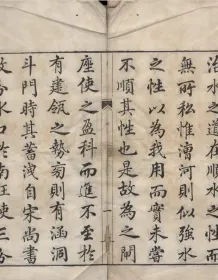 治水之
無所私惟漕河則似強水
之性以為我用而實未嘗
不順其性也是故為之閘
座使之盈科而進不至於
有建瓴之勢蜀則有涵洞
斗門時其蓄洩自宋尚書
改分水口於南旺使三分